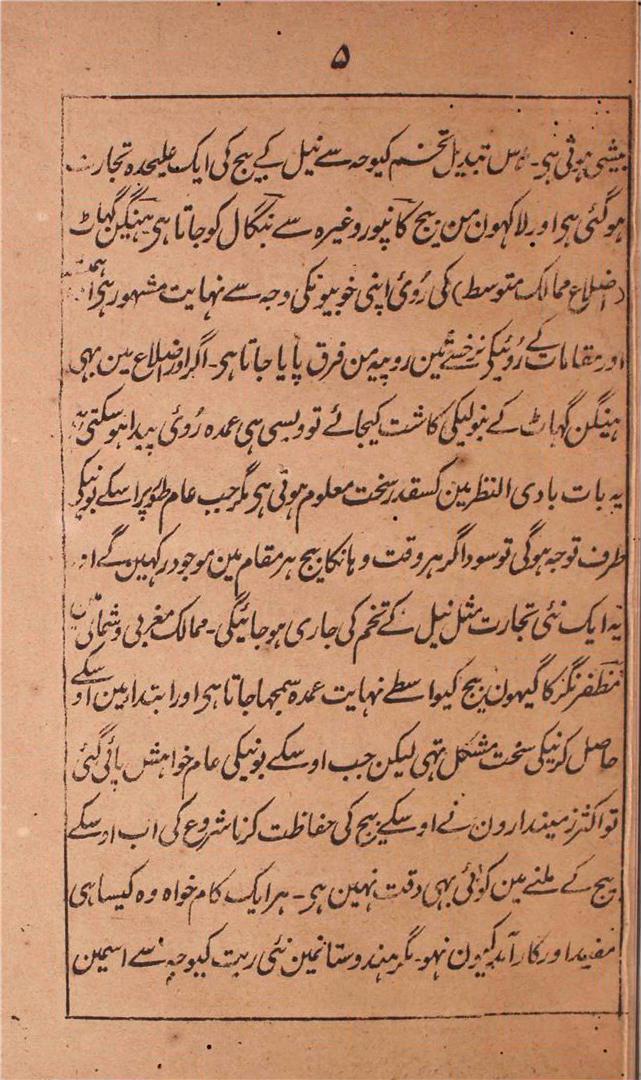 ۵
بیشی ہوتی ہی۔ اس تبدیل تخم کیوجہ سے نیل کے بیج کی ایک علیحدہ تجارت
ہوگئی ہی اور لاکہون من بیج کانپور وغیرہ سے بنگال کو جاتا ہی ہینگن گہاٹ
(اضلاع ممالک متوسط) کی رُوئی اپنی خوبیونکی وجہ سے نہایت مشہور ہی
اور مقامات کے رُوئیکی نرخسے تین روپیہ من فرق پایا جاتا ہی۔ اگر اور اضلاع مین بہی
ہینگن گہاٹ کے بنولیکی کاشت کیجائے تو ویسی ہی عمدہ رُوئی پیدا ہوسکتی ہی
یہ بات بادی النظر مین کسقدر سخت معلوم ہوتی ہی مگر جب عام طور پر اسکے بونیکی
طرف توجہ ہوگی تو سوداگر ہر وقت وہانکا بیج ہر مقام مین موجود رکہین گے اور
یہ ایک نئی تجارت مثل نیل کے تخم کی جاری ہوجائیگی۔ ممالک مغربی و شمالی مین
مظفرنگر کا گیہون بیج کیواسطے نہایت عمدہ سمجہا جاتا ہی اور ابتدا مین اوسکے
حاصل کرنیکی سخت مشکل تہی لیکن جب اوسکے بونیکی عام خواہش پائی گئی
تو اکثر زمیندارون نے اوسکے بیج کی حفاظت کرنا شروع کی اب اوسکے
بیج کے ملنے مین کوئی بہی دقت نہین ہی۔ ہر ایک کام خواہ وہ کیسا ہی
مفید اور کار آمد کیون نہو۔ مگر ہندوستانمین نئی ریت کیوجہ سے اسمین